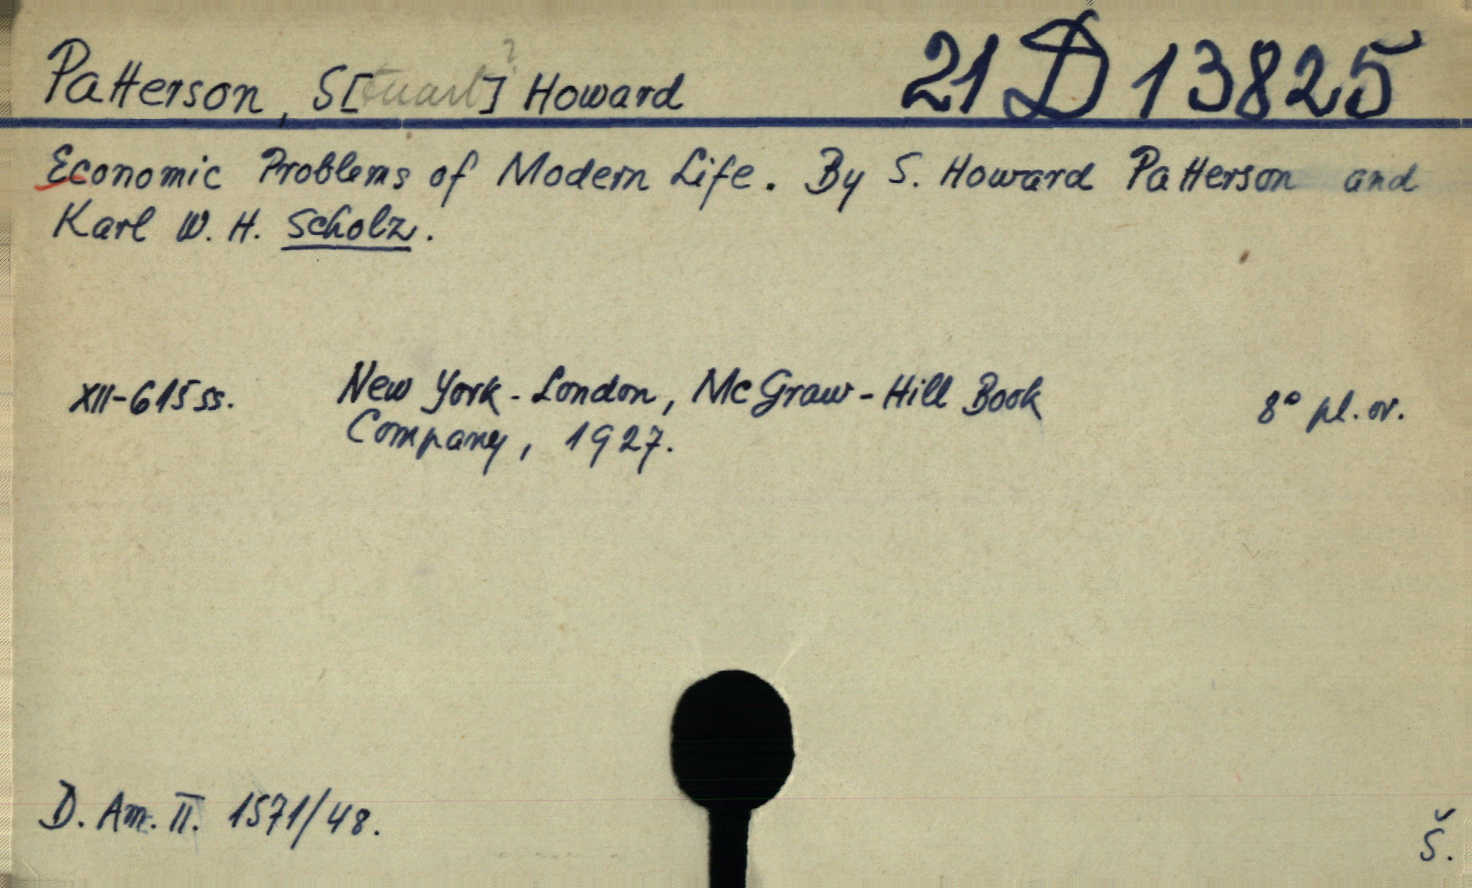 Patterson, S[tuart]? Howard 21 D 13825
Economic Problems of Modern Life. By S. Howard Patterson and
Karl W. H. Scholz.
XII-615 ss. New York - London, McGraw-Hill Book 8° pl. or.
Company, 1927.
D. Am. II. 1571/48.
Š.